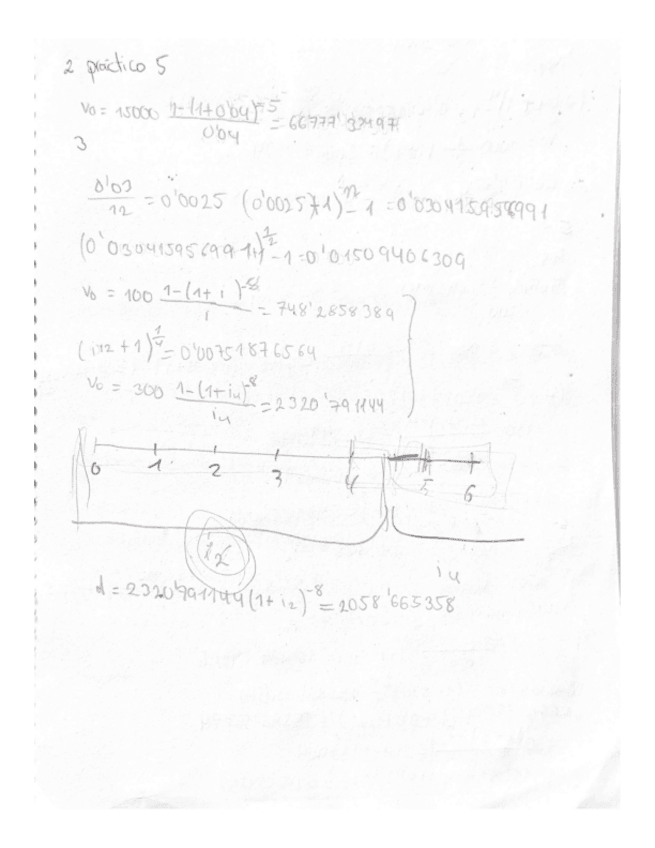 2 práctico 5
V0 = 15000 1-(1+0'04)^-5 / 0'04 = 66777'32497
3
0'03/12 = 0'0025 (0'0025+1)^12 - 1 = 0'03041595691
(0'030415956991+1)^1/2 - 1 = 0'01509406309
V0 = 100 1-(1+i)^-8 / i = 748'2858389
(i12+1)^1/4 = 0'00751876564
V0 = 300 1-(1+i4)^-8 / i4 = 2320'791144
0 1 2 3 4 5 6
i2
i4
d = 2320'791144(1+i2)^-8 = 2058'665358